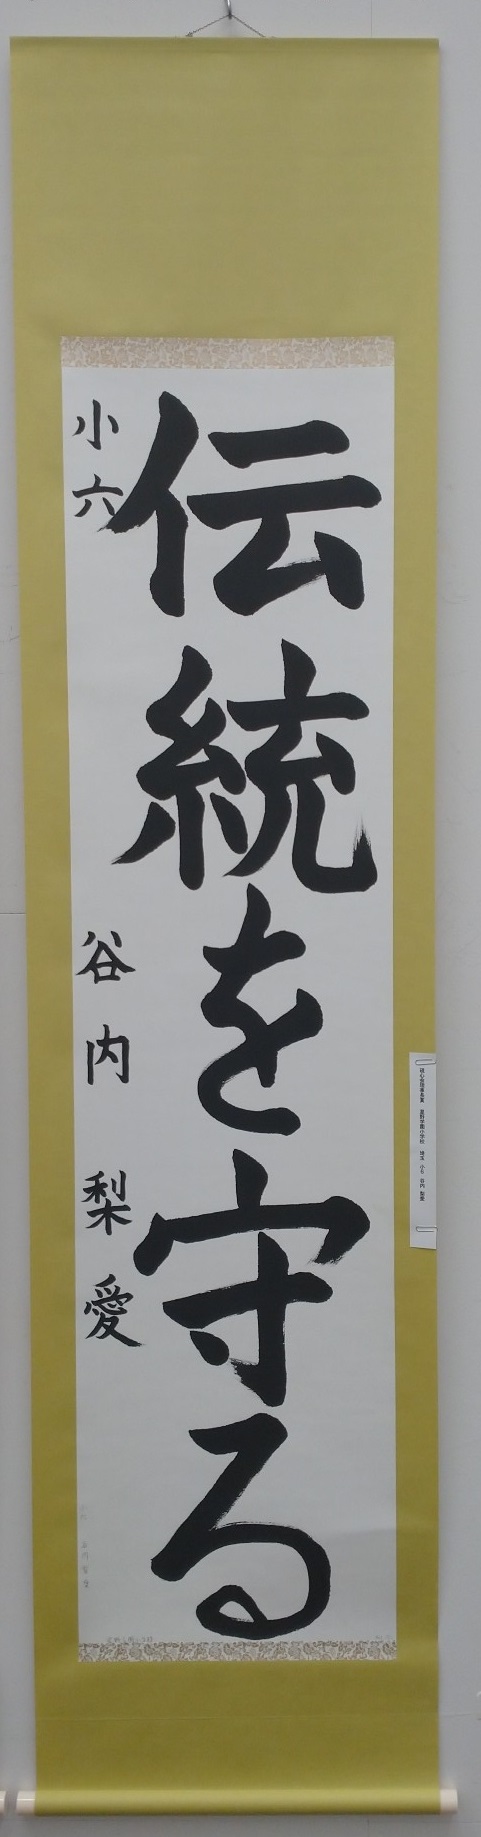 伝統を守る
小六 谷内 梨愛